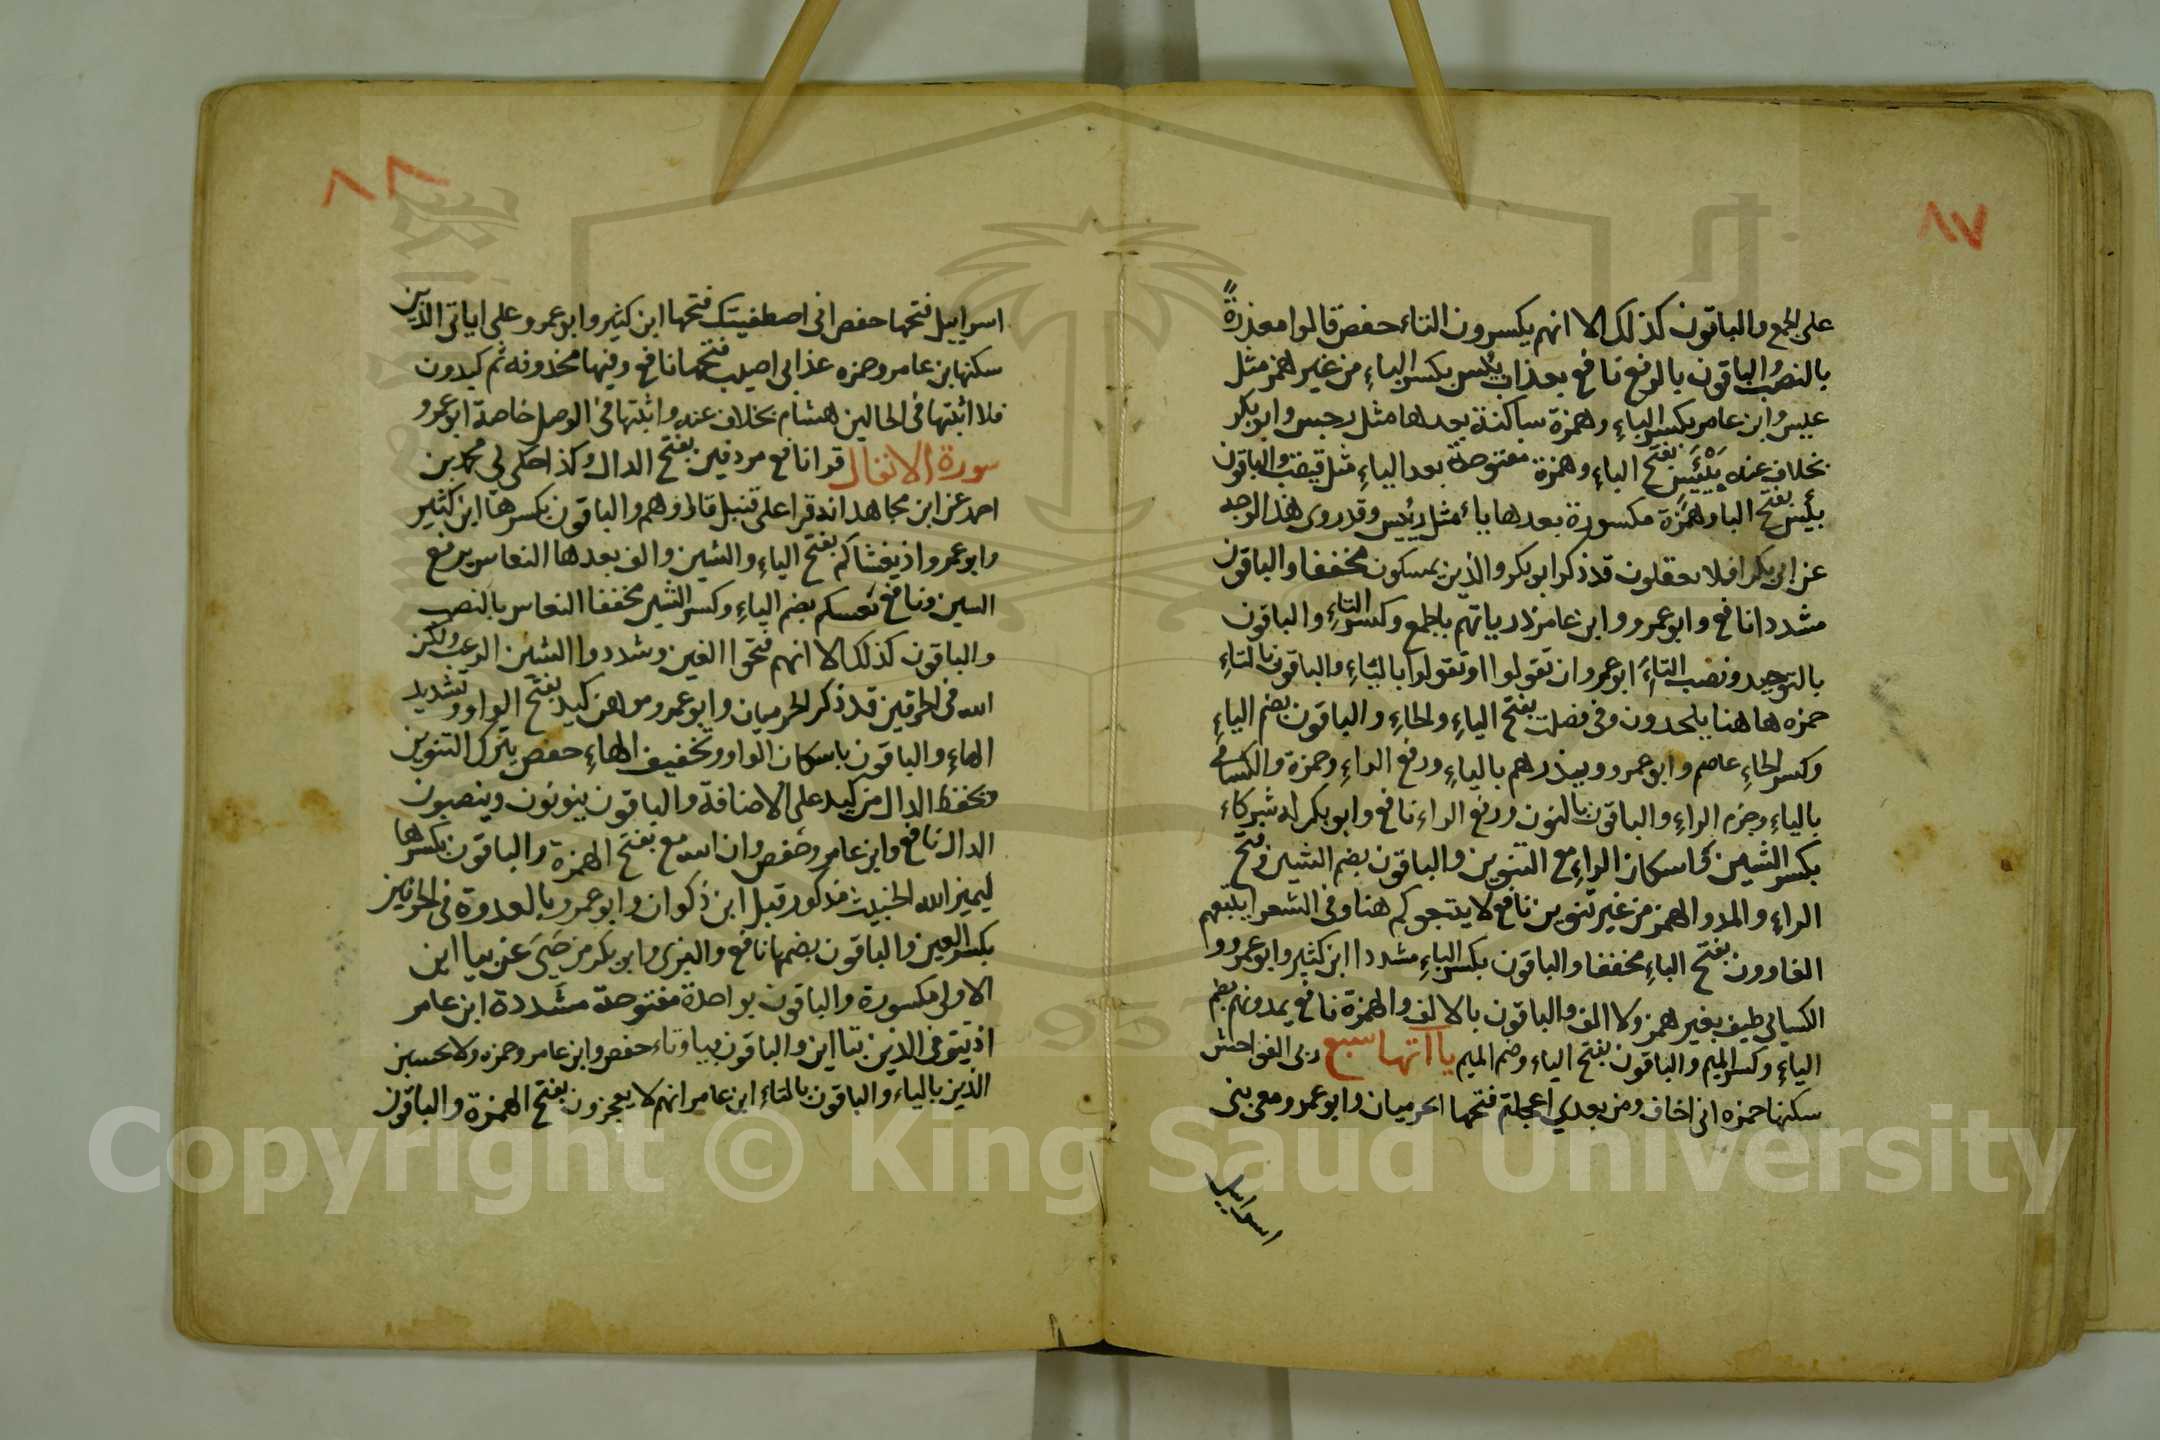 ٨٧
على الجمع والباقون كذلك الا انهم يكسرون التاء حفص قالوا معذرةً
بالنصب والباقون بالرفع نافع بعذاب بيس بكسر الباءِ من غير همز مثل
عيس وابن عامر بكسر الباءِ وهمزة ساكنة بعدها مثل رجس وابو بكر
بخلاف عنه بَيْئَسٍ بفتح الباءِ وهمزة مفتوحة بعد الياءِ مثل والباقون
بئيس بفتح البا وهمزة مكسورة بعدها ياء مثل رئيس وقد روى هذا الوجه
عن ابى بكر افلا تعقلون قد ذكر ابو بكر والذين يمسكون مخففا والباقون
مشددا نافع وابو عمرو وابن عامر ذرياتهم بالجمع وكسر التاءِ والباقون
بالتوحيد ونصب التاءَِ ابو عمرو ان تقولوا او تقولوا بالياءِ والباقون بالتاءِ
حمزه هاهنا يلحدون وفى فصلت بفتح الياءِ والحاءِ والباقون بضم الياءِ
وكسر الحاءِ عاصم وابو عمرو ويذرهم بالياءِ ورفع الراءِ وحمزة والكسائى
بالياءِ وجزم الراءِ والباقون بالنون ورفع الراء نافع وابو بكر له شركاء
بكسر الشين واسكان الراءِ مع التنوين والباقون بضم الشين وفتح
الراءِ والمد والهمز من غير تنوين نافع لا يتبعوكم هنا وفى الشعرا يتبعهم
الغاوون بفتح الباءِ مخففا والباقون بكسر الباءِ مشددا ابن كثير وابو عمرو و
الكسائى طيف بغير همز ولا الف والباقون بالالف والهمزة نافع يمدونهم بضم
الياءِ وكسر الميم والباقون بفتح الياء وضم الميم ياآتها سبع ربى الفواحش
سكنها حمزه انى اخاف ومن بعدي اعجلتم فتحها الحرميان وابو عمرو معى بنى
اسراييل
٨٨
اسراييل فتحها حفص انى اصطفيتك فتحها ابن كثير وابو عمرو على اياتى الذين
سكنها بن عامر وحمزه عذابى اصيب فتحها نافع وفيها محذوفه ثم كيدون
فلا اثبتها فى الحالين هشام بخلاف عنه واثبتها فى الوصل خاصة ابو عمرو
سورة الانفال قرا نافع مردفين بفتح الدال وكذا حكى لى محمد بن
احمد عن ابن مجاهد انه قرا على قنبل قال وهم والباقون بكسرها ابن كثير
وابو عمرو اذ يغشاكم بفتح الياءِ والشين والف بعدها النعاس برفع
السين ونافع بضم الياءِ وكسر الشين مخففا النعاس بالنصب
والباقون كذلك الا انهم فتحوا الغين وشددوا الشين الرعب ولكن
الله فى الحرفين قد ذكر الحرميان وابو عمرو موهن كيد بفتح الواو وتشديد
الهاءِ والباقون باسكان الواو وتخفيف الهاءِ حفص بترك التنوين
وبخفض الدال من كيد على الاضافة والباقون ينونون وينصبون
الدال نافع وابن عامر وحفص وان الله مع بفتح الهمزة والباقون بكسرها
ليميز الله الخبيث مذكور قبل ابن ذكوان وابو عمرو بالعدوة فى الحرفين
بكسر العين والباقون بضمها نافع والبزى وابو بكر من حَيِىَ عن بيااين
الاولى مكسورة والباقون بواحدة مفتوحة مشددة ابن عامر
اذ تتوفى الذين بتااين والباقون بيا وتاء حفص وابن عامر وحمزه ولا يحسبن
الذين بالياء والباقون بالتاءِ ابن عامر انهم لا يعجزون بفتح الهمزة والباقون
Copyright © King Saud University
1957